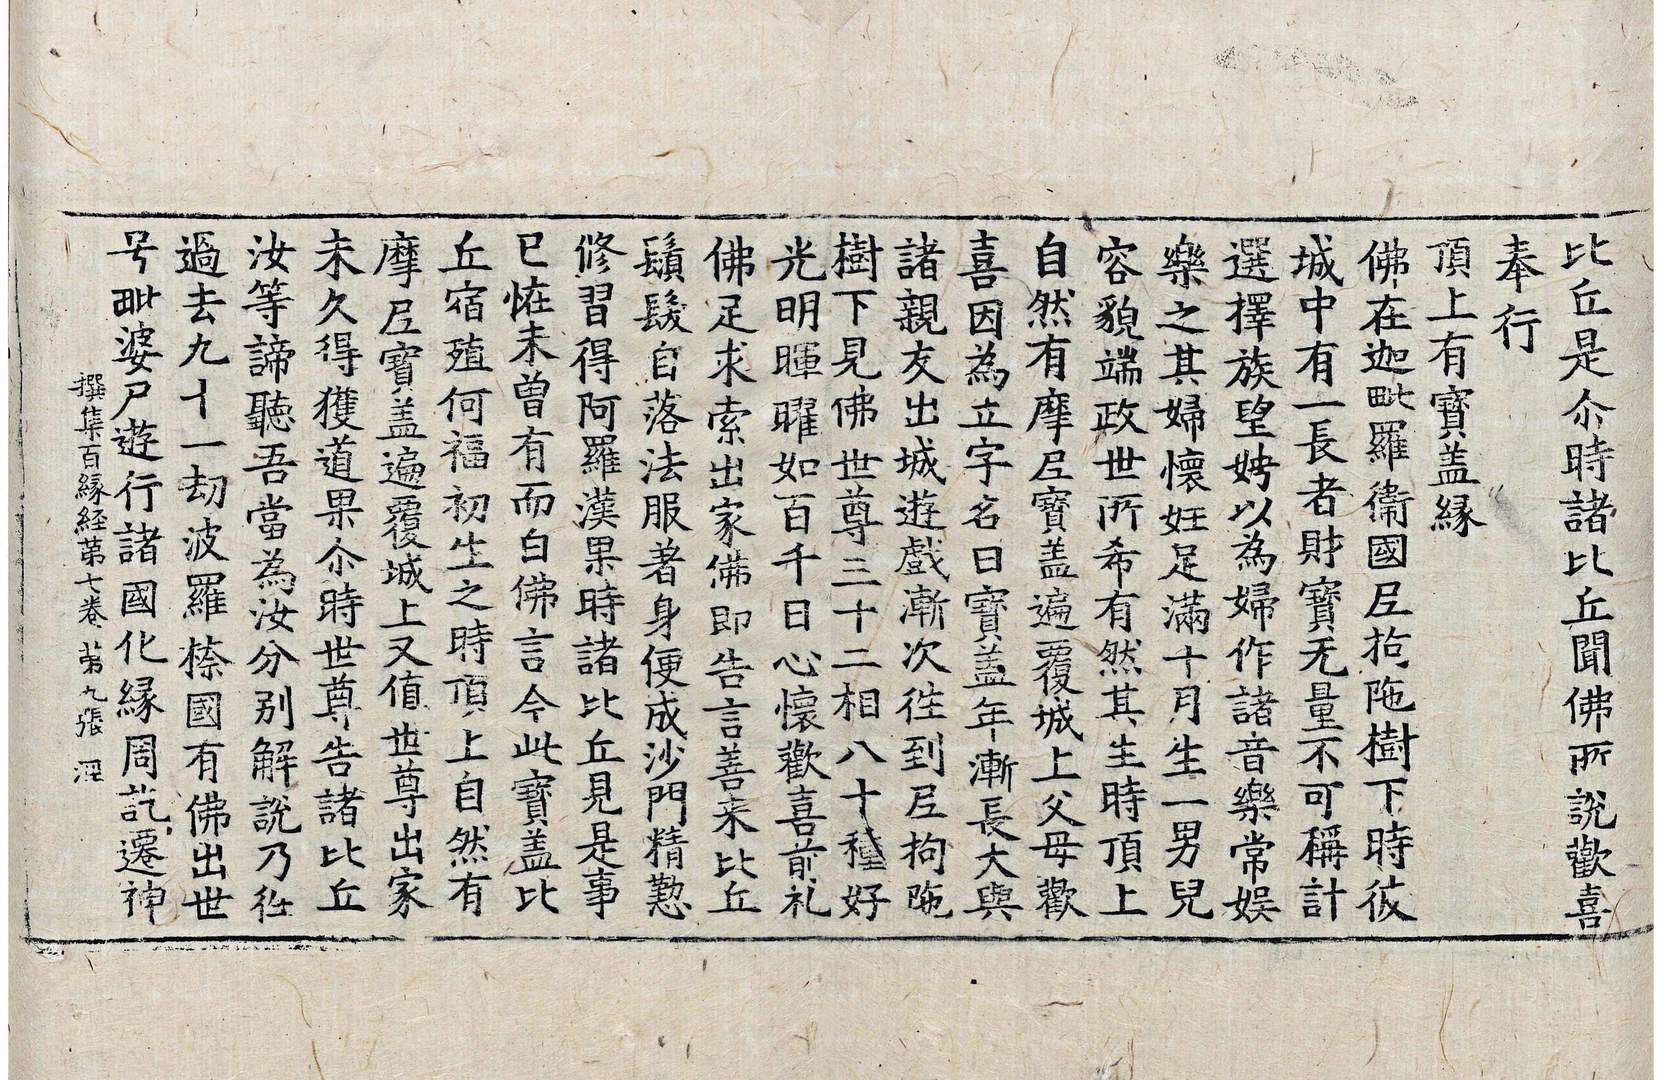 比丘是尒時諸比丘聞佛所說歡喜
奉行
頂上有寶盖縁
佛在迦毗羅衞國尼拘陁樹下時彼
城中有一長者財寶无量不可稱計
選擇族望娉以為婦作諸音樂常娛
樂之其婦懷妊足滿十月生一男兒
容貌端政世所希有然其生時頂上
自然有摩尼寶盖遍覆城上父母歡
喜因為立字名曰寶盖年漸長大與
諸親友出城遊戲漸次徃到尼拘陁
樹下見佛世尊三十二相八十種好
光明暉曜如百千日心懷歡喜前礼
佛足求索出家佛即告言善来比丘
鬚髮自落法服著身便成沙門精懃
修習得阿羅漢果時諸比丘見是事
已恠未曾有而白佛言今此寶盖比
丘宿殖何福初生之時頂上自然有
摩尼寶盖遍覆城上又值世尊出家
未久得獲道果尒時世尊告諸比丘
汝等諦聽吾當為汝分別解說乃徃
過去九十一劫波羅㮈國有佛出世
号毗婆尸遊行諸國化縁周訖遷神
撰集百縁経第七卷 第九張 淫